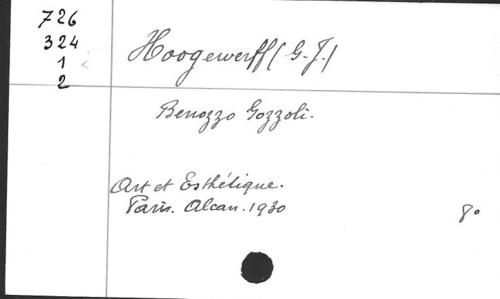 726
324
1
2
Hoogewerff (G.J.)
Benozzo Gozzoli.
Art et Esthétique.
Paris. Alcan. 1930
8°